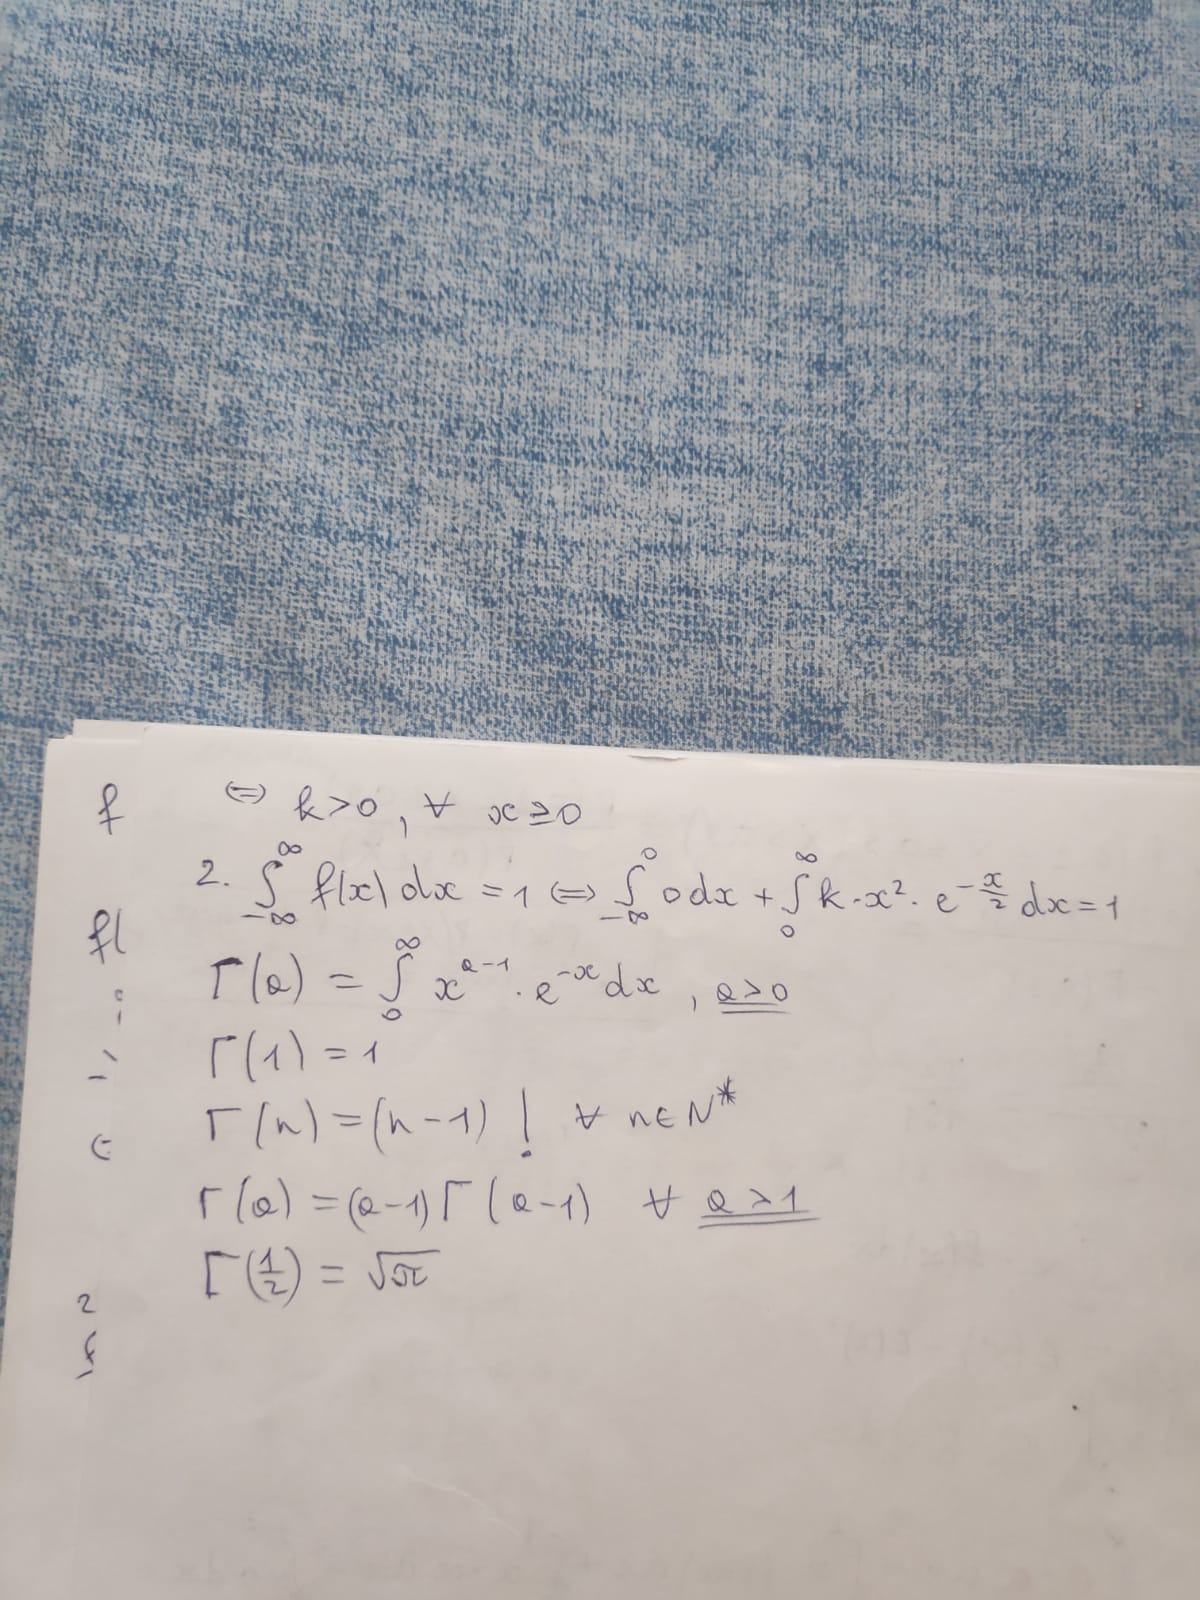 ⇔ k>0, ∀ x≥0
2. ∫_{-∞}^{∞} f(x) dx = 1 ⇔ ∫_{-∞}^{0} 0 dx + ∫_{0}^{∞} k·x²·e^{-x/2} dx = 1
Γ(a) = ∫_{0}^{∞} x^{a-1}·e^{-x} dx, a>0
Γ(1) = 1
Γ(n) = (n-1)! ∀ n∈N*
Γ(a) = (a-1)Γ(a-1) ∀ a>1
Γ(1/2) = √π
f
f(
2